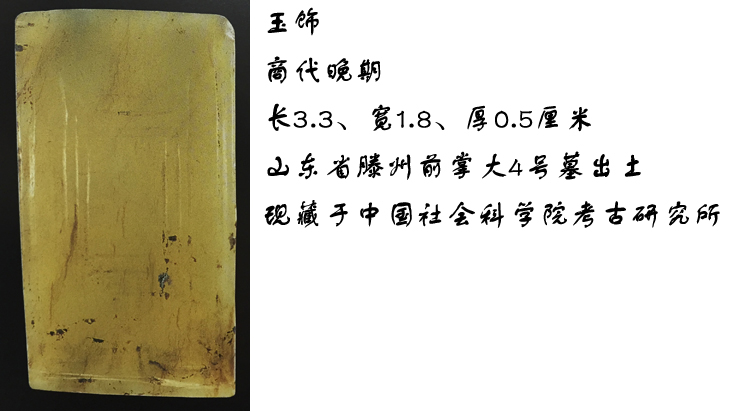 玉饰
商代晚期
长3.3、宽1.8、厚0.5厘米
山东省滕州前掌大4号墓出土
现藏于中国社会科学院考古研究所